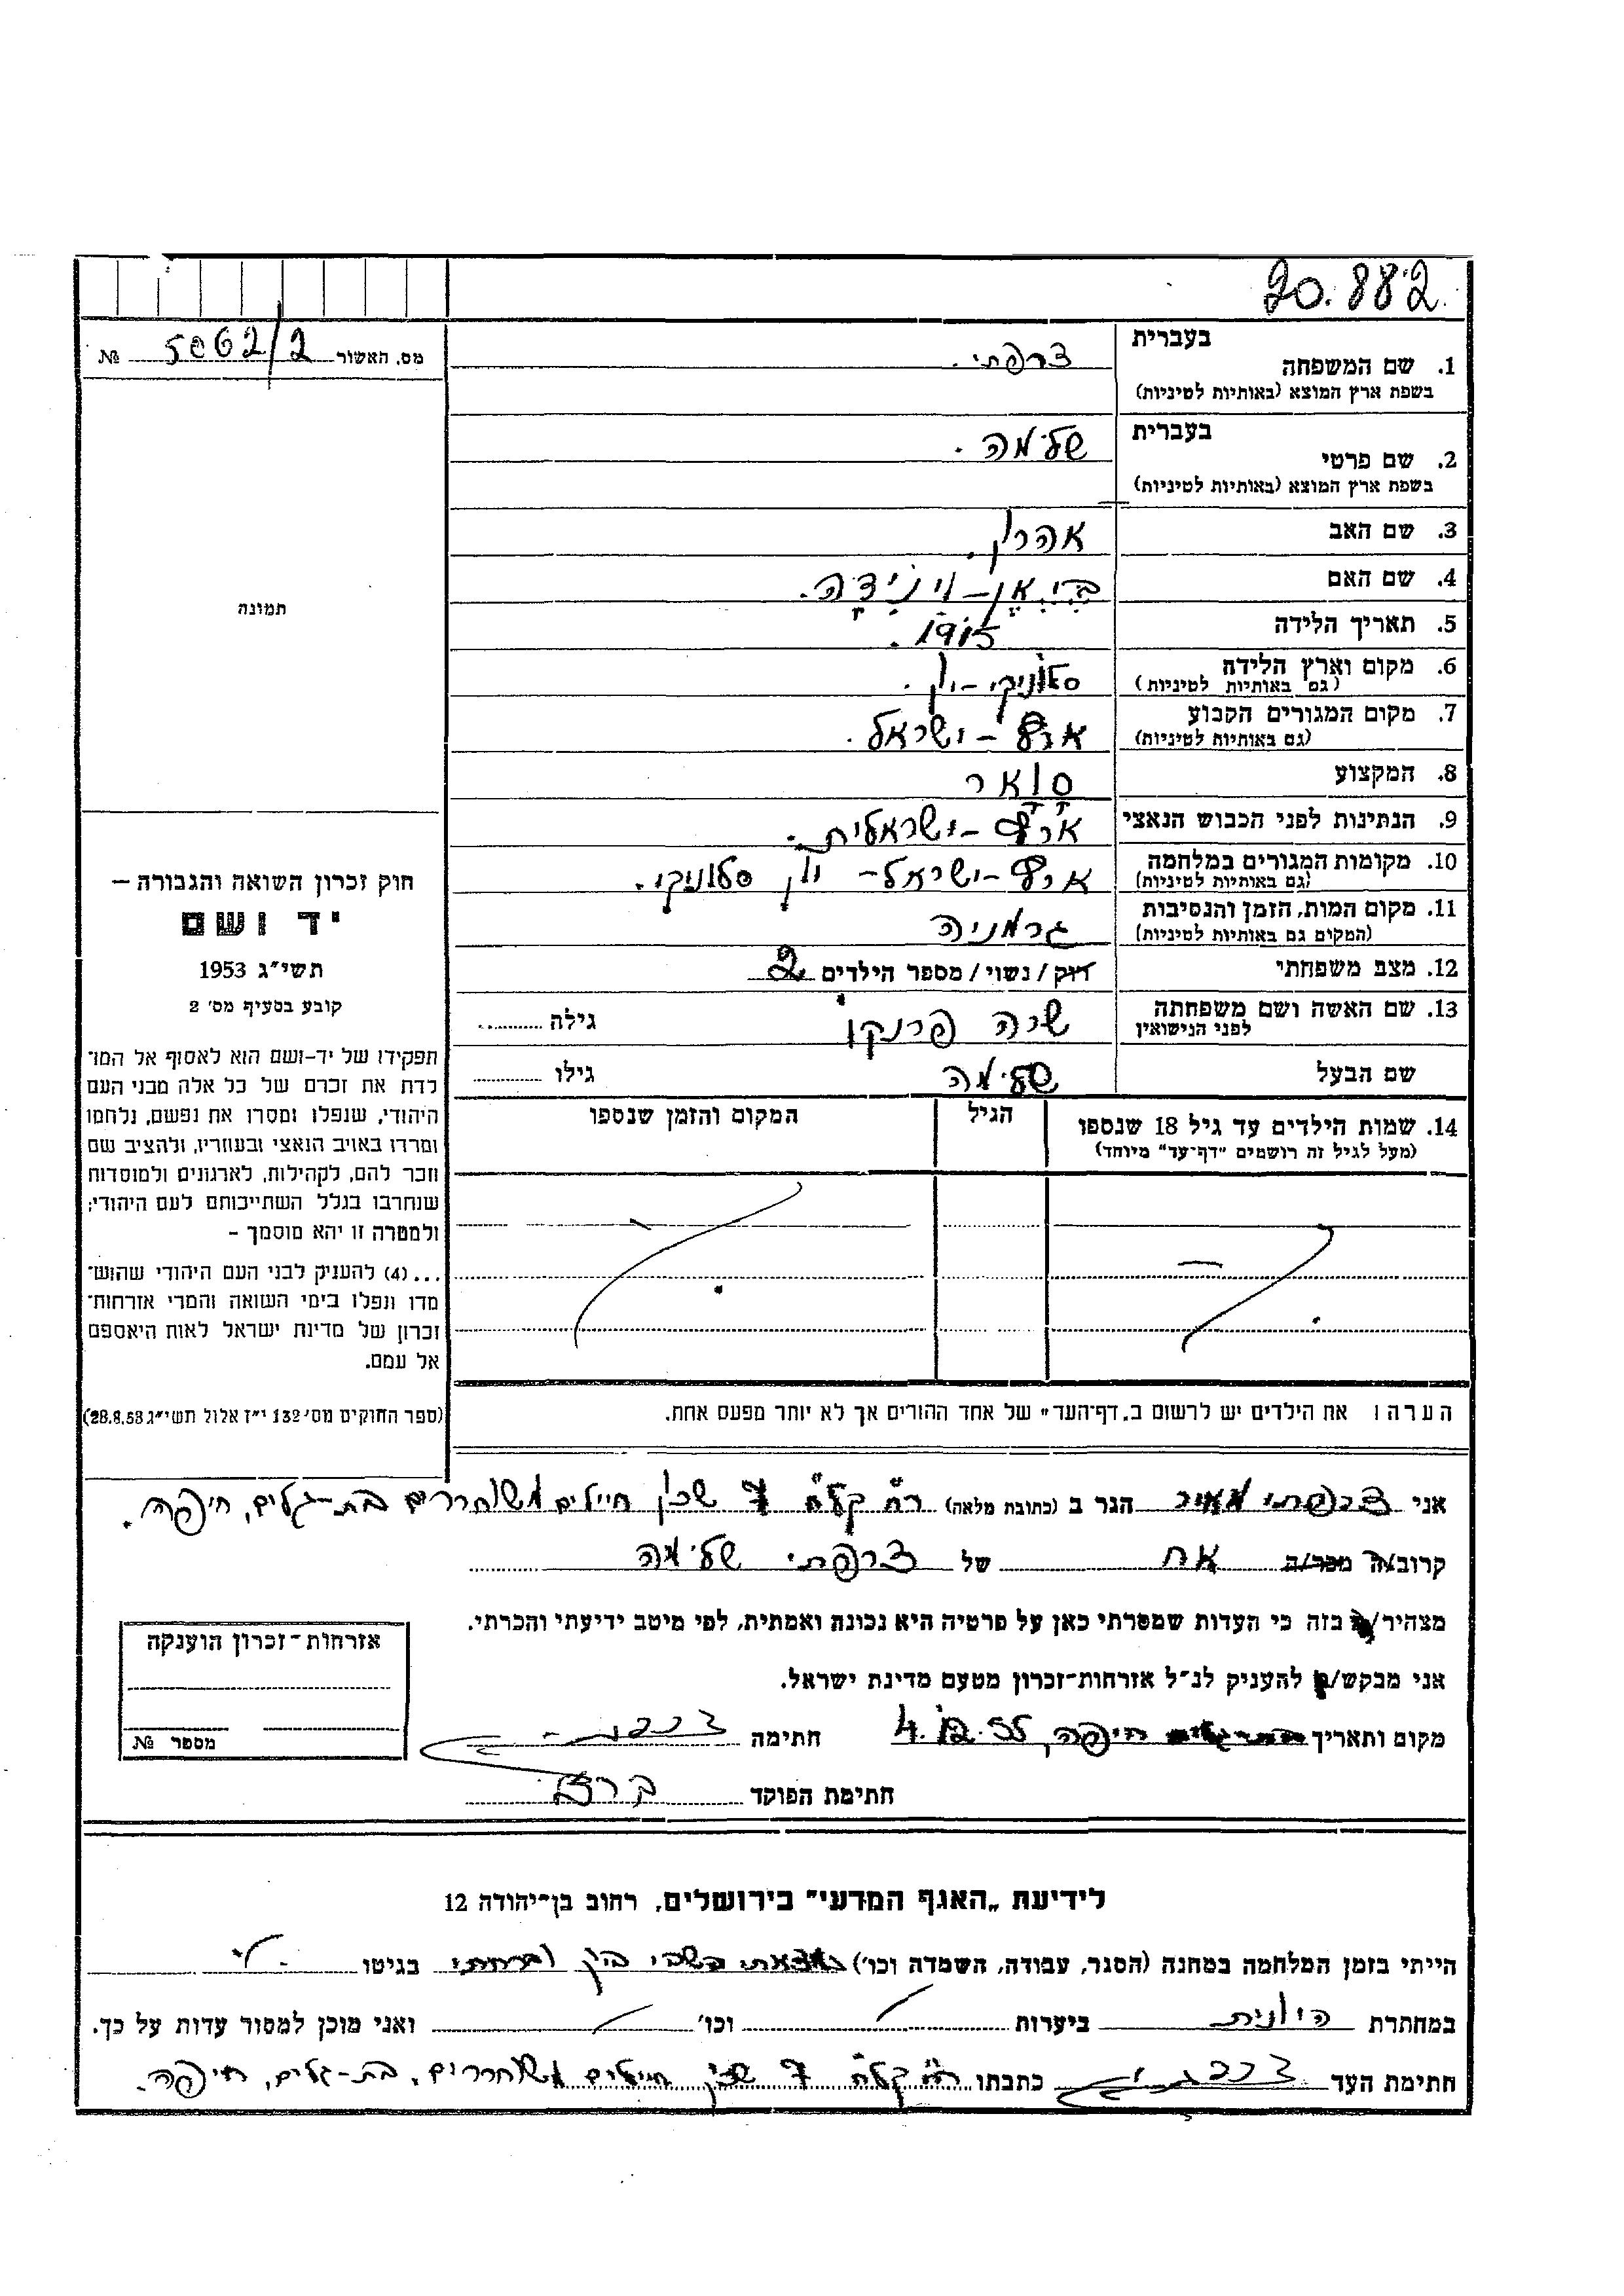 20.882
מס. האשור 5062/2 №
בעברית
1. שם המשפחה צרפתי.
בשפת ארץ המוצא (באותיות לטיניות)
בעברית
2. שם פרטי שלמה.
בשפת ארץ המוצא (באותיות לטיניות)
3. שם האב אהרון.
4. שם האם
5. תאריך הלידה 1915.
6. מקום וארץ הלידה סלוניקי - יון.
(גם באותיות לטיניות)
7. מקום המגורים הקבוע ארץ - ישראל.
(גם באותיות לטיניות)
8. המקצוע סואר
9. הנתינות לפני הכבוש הנאצי ארץ - ישראלית.
10. מקומות המגורים במלחמה ארץ - ישראל - יון סלוניקי.
(גם באותיות לטיניות)
11. מקום המות, הזמן והנסיבות גרמניה
(המקום גם באותיות לטיניות)
12. מצב משפחתי רוק / נשוי / מספר הילדים 2
13. שם האשה ושם משפחתה שרה פרנקו גילה
לפני הנישואין
שם הבעל שלמה גילו
14. שמות הילדים עד גיל 18 שנספו הגיל המקום והזמן שנספו
(מעל לגיל זה רושמים "דף-עד" מיוחד)
הערה ו את הילדים יש לרשום ב"דף-העד" של אחד ההורים אך לא יותר מפעם אחת.
תמונה
חוק זכרון השואה והגבורה –
יד ושם
תשי"ג 1953
קובע בסעיף מס' 2
תפקידו של יד-ושם הוא לאסוף אל המו־
לדת את זכרם של כל אלה מבני העם
היהודי, שנפלו ומסרו את נפשם, נלחמו
ומרדו באויב הנאצי ובעוזריו, ולהציב שם
וזכר להם, לקהילות, לארגונים ולמוסדות
שנחרבו בגלל השתייכותם לעם היהודי;
ולמטרה זו יהא מוסמך –
... (4) להעניק לבני העם היהודי שהוש־
מדו ונפלו בימי השואה והמרי אזרחות־
זכרון של מדינת ישראל לאות היאספם
אל עמם.
(ספר החוקים מס' 132 י"ז אלול תשי"ג 28.8.53)
אני צרפתי מאיר הגר ב (כתובת מלאה) רח' קלח 7 שכון חיילים משוחררים בת-גלים, חיפה.
קרוב/ה מכר/ה אח של צרפתי שלמה
מצהיר/ה בזה כי העדות שמסרתי כאן על פרטיה היא נכונה ואמתית, לפי מיטב ידיעתי והכרתי.
אני מבקש/ת להעניק לנ"ל אזרחות־זכרון מטעם מדינת ישראל.
מקום ותאריך חיפה, 4.12.55 חתימה
חתימת הפוקד
אזרחות־זכרון הוענקה
מספר №
לידיעת "האגף המדעי" בירושלים, רחוב בן־יהודה 12
הייתי בזמן המלחמה במחנה (הסגר, עבודה, השמדה וכו') בגיטו
במחתרת היונית ביערות וכו' ואני מוכן למסור עדות על כך.
חתימת העד כתבתו רח' קלח 7 שכון חיילים משוחררים, בת-גלים, חיפה.